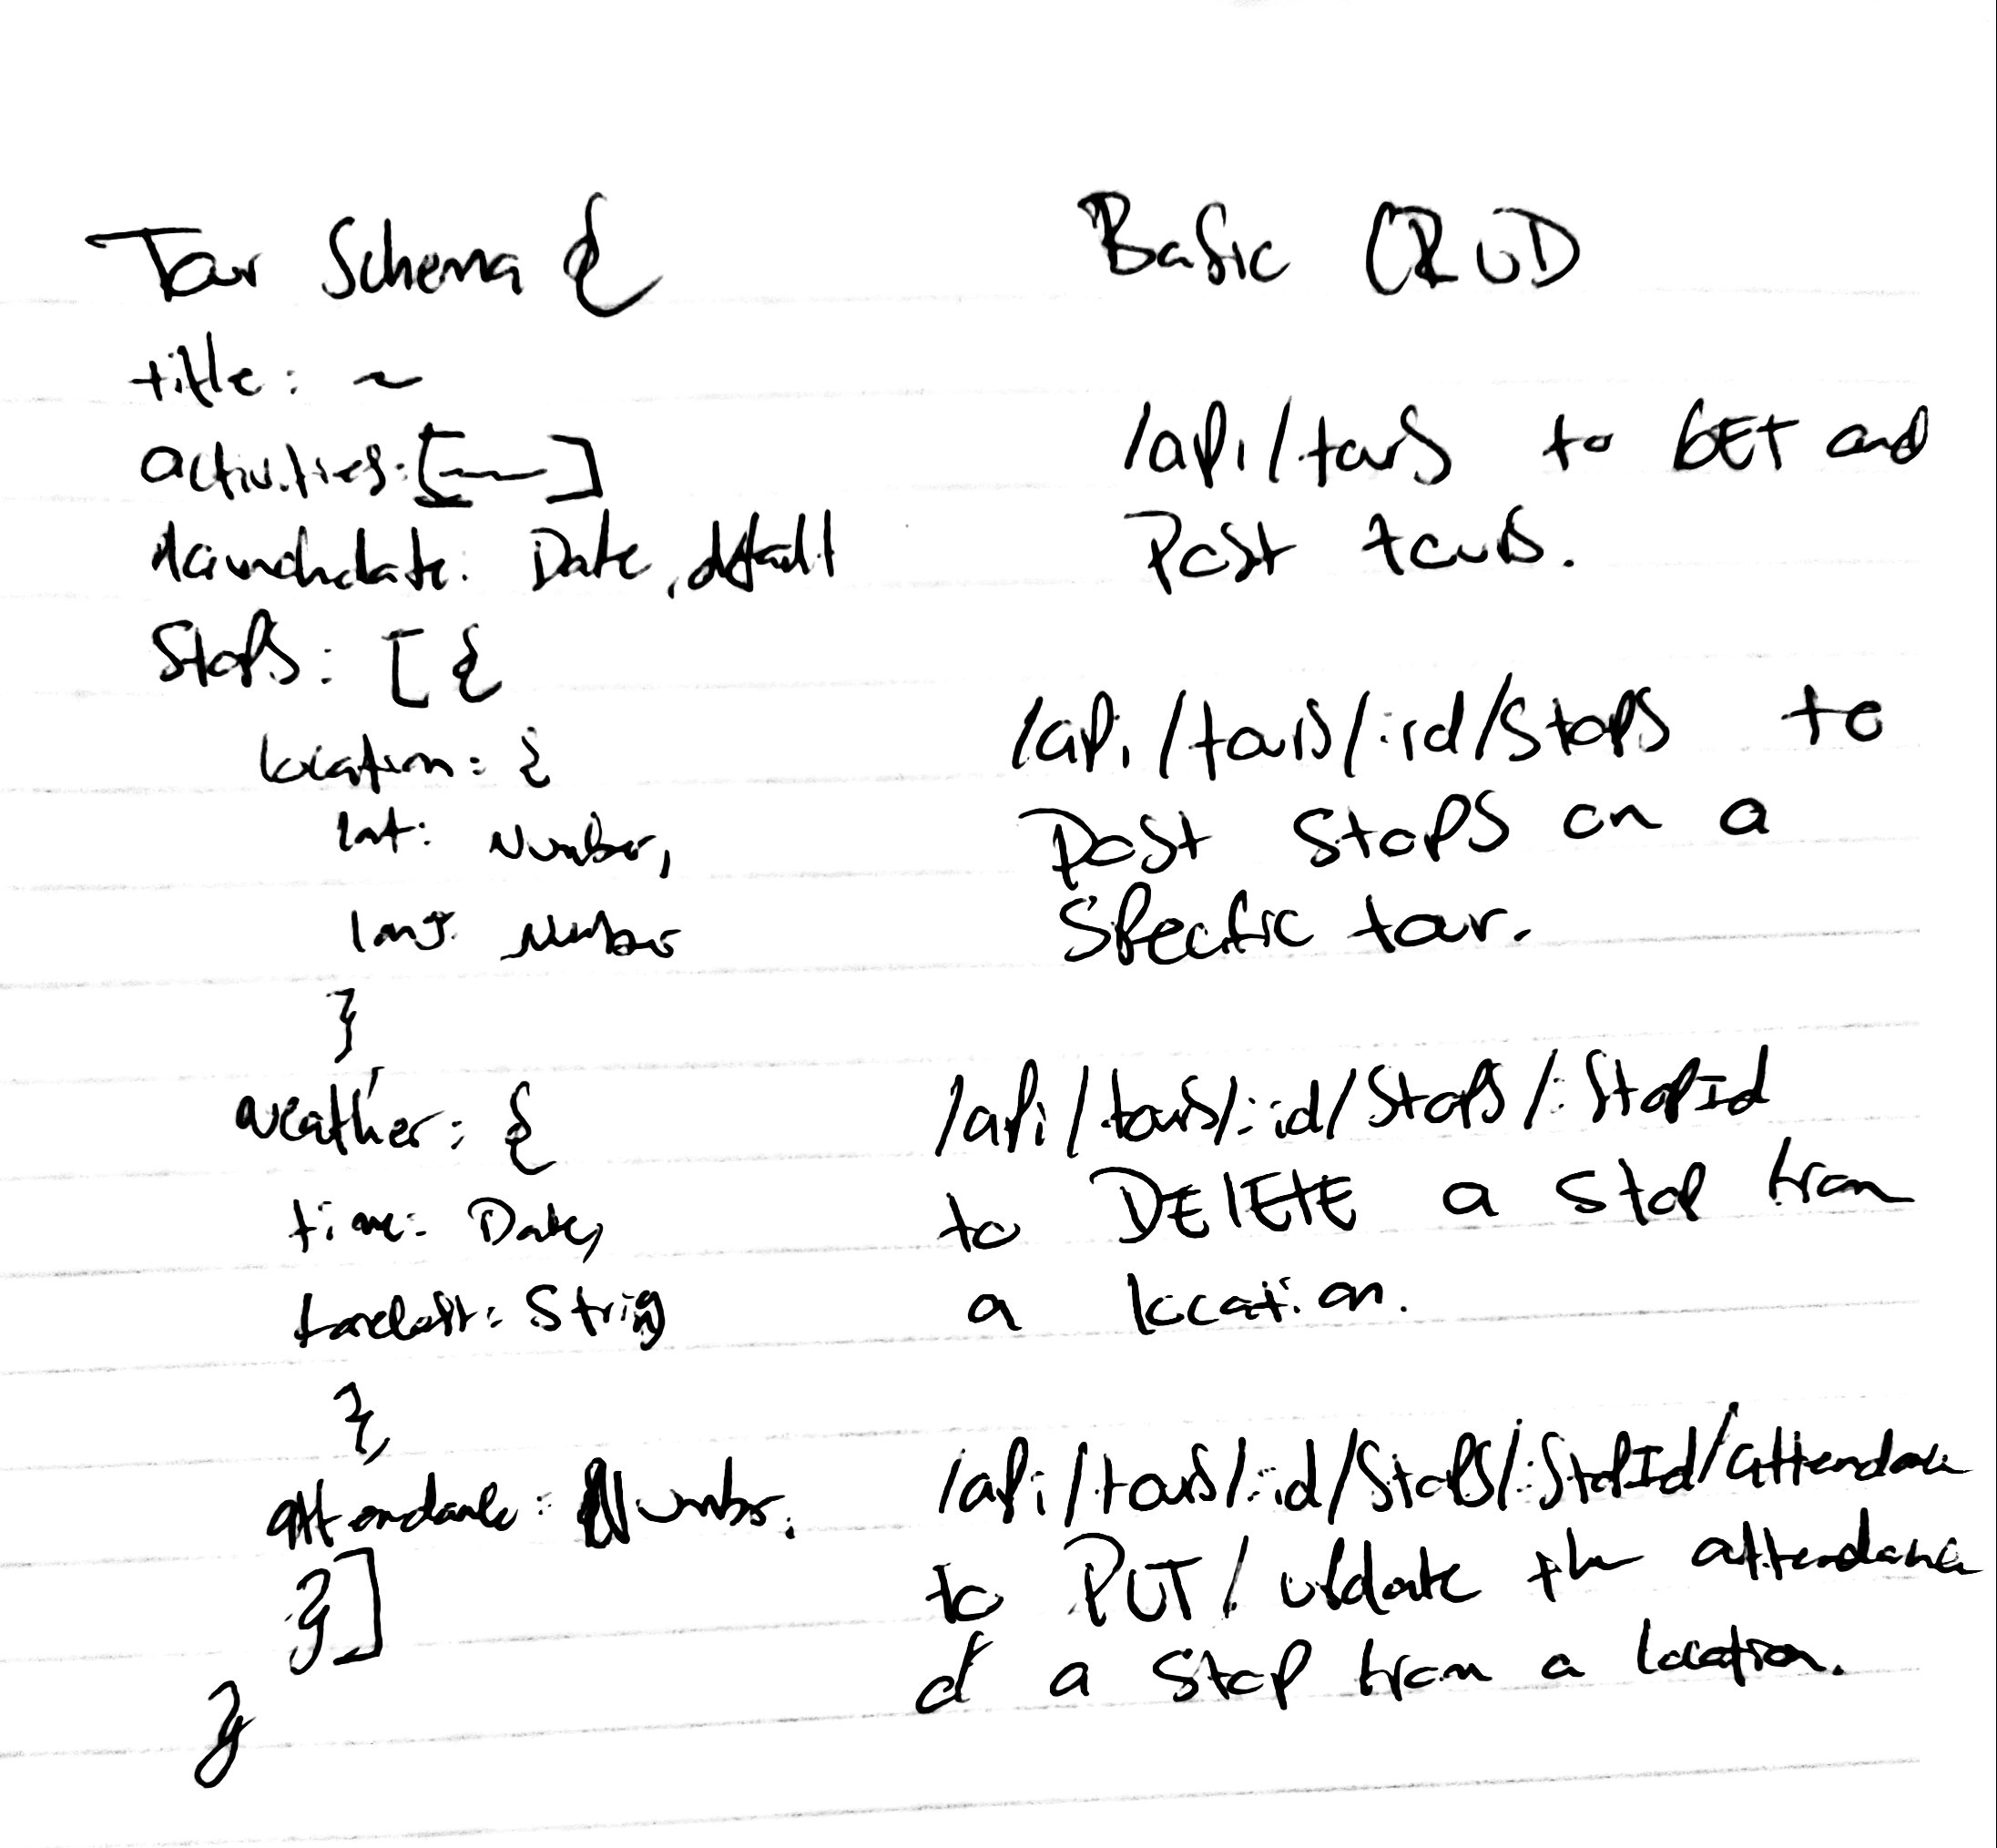 Tour Schema {
title: ~
activities: [ ]
launchdate: Date, default
Stops: [ {
location: {
lat: Number,
long: Number
}
weather: {
time: Date,
forecast: String
},
attendance: Number.
}]
}
Basic CRUD
/api/tours to GET and
Post tours.
/api/tours/:id/stops to
Post stops on a
Specific tour.
/api/tours/:id/stops/:stopId
to DELETE a stop from
a location.
/api/tours/:id/stops/:stopId/attendance
to PUT/update the attendance
of a stop from a location.